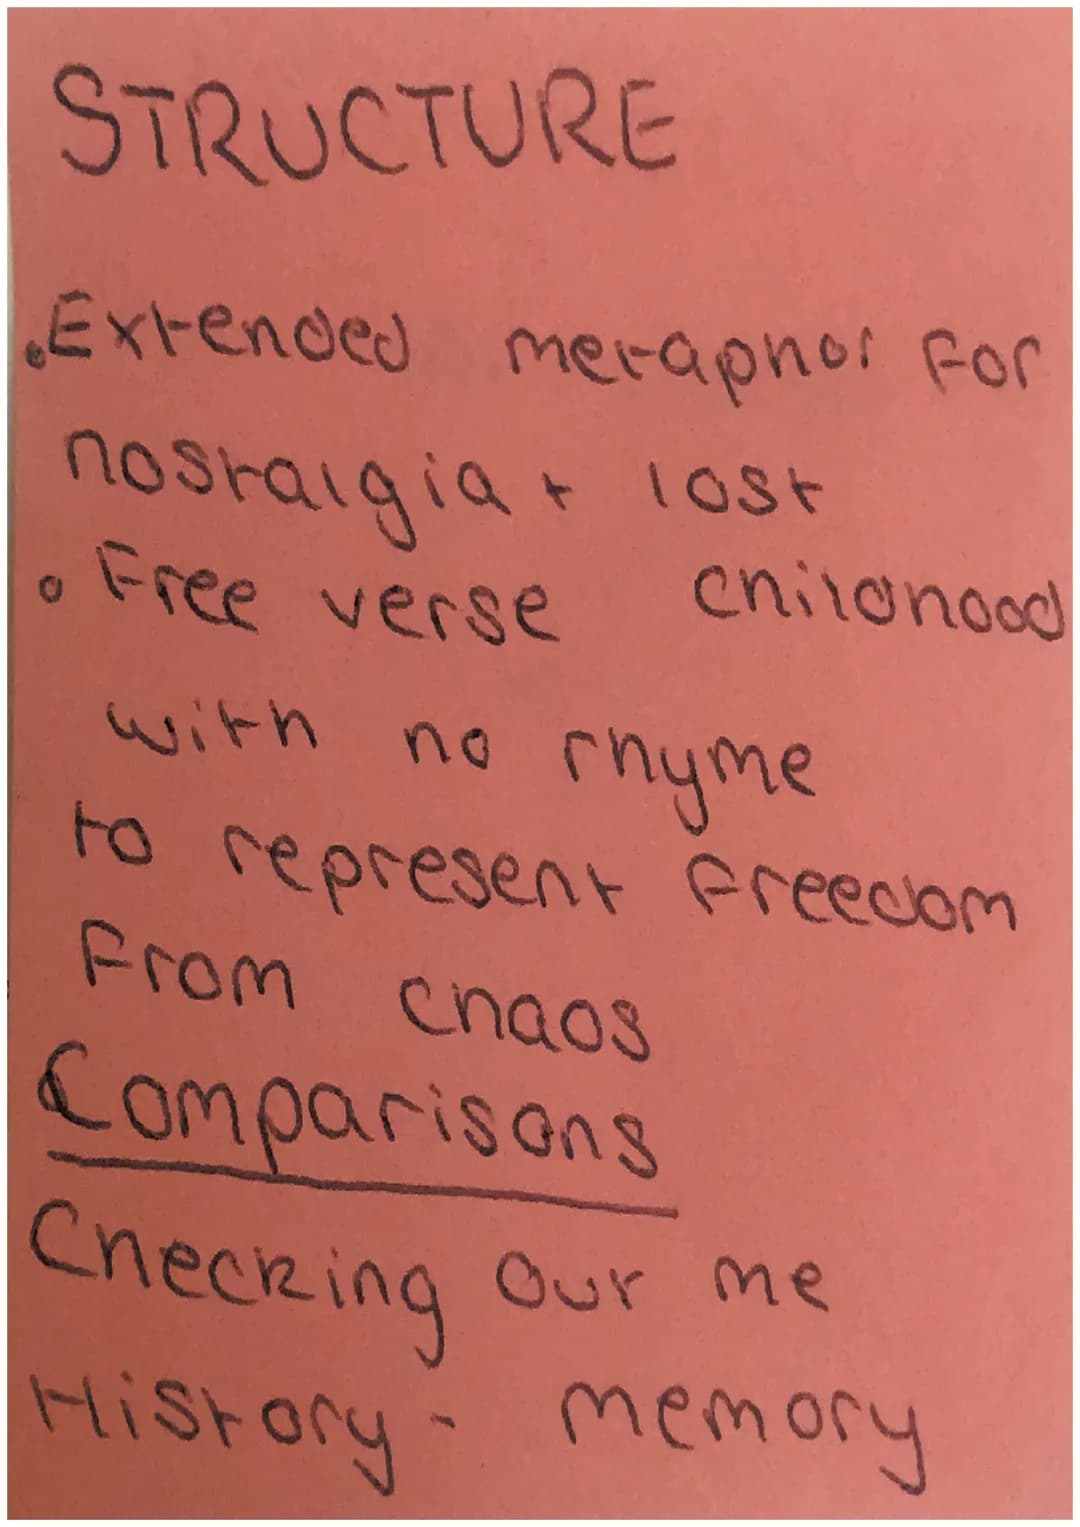 STRUCTURE
.Extended metaphor for
nostalgia + lost
childhood
• Free verse
with no rhyme
to represent freedom
from chaos
Comparisons
Checking Out me
History - memory